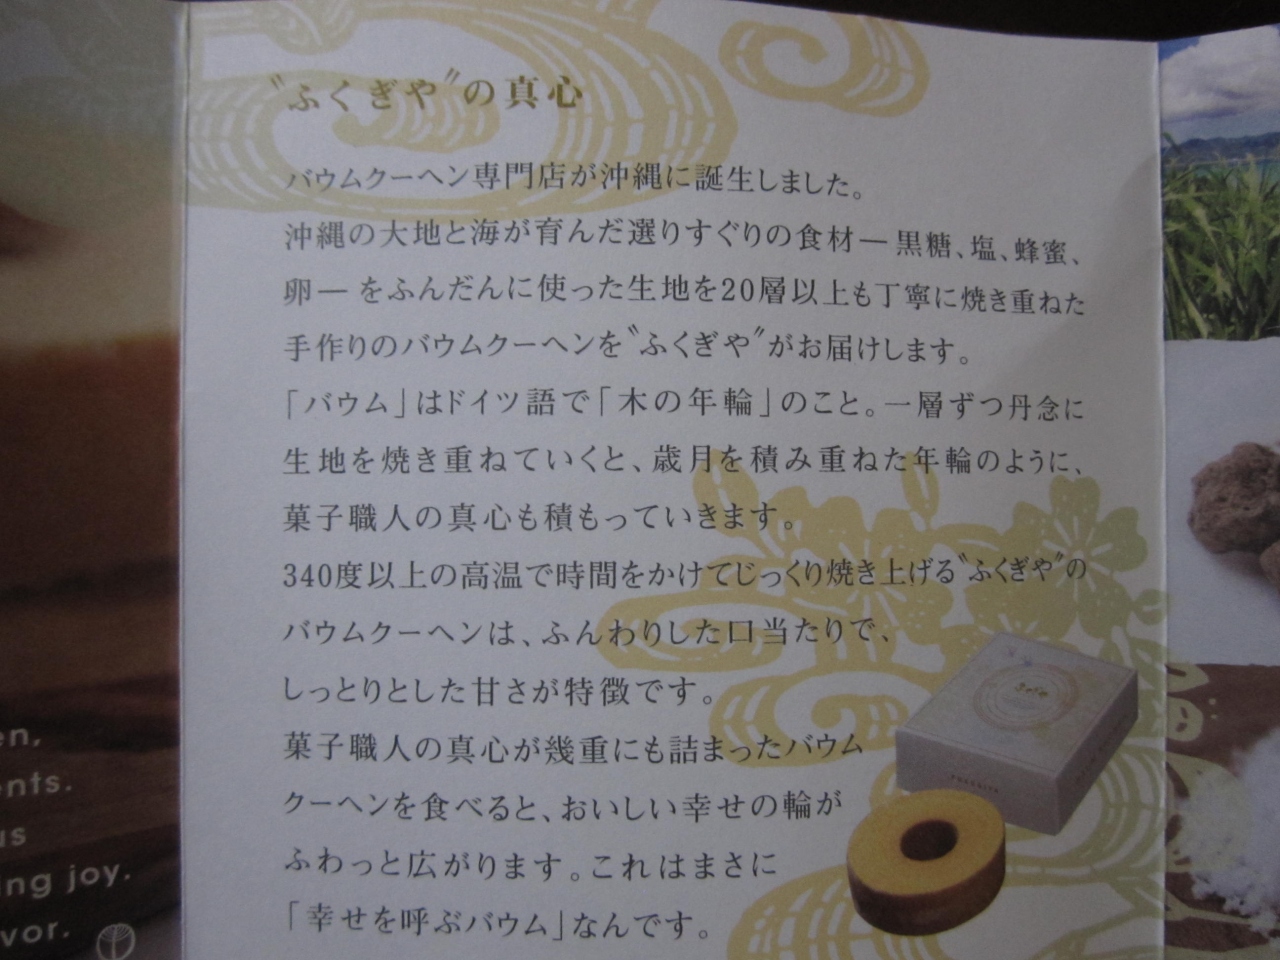 〝ふくぎや〞の真心
バウムクーヘン専門店が沖縄に誕生しました。
沖縄の大地と海が育んだ選りすぐりの食材―黒糖、塩、蜂蜜、
卵―をふんだんに使った生地を20層以上も丁寧に焼き重ねた
手作りのバウムクーヘンを〝ふくぎや〞がお届けします。
「バウム」はドイツ語で「木の年輪」のこと。一層ずつ丹念に
生地を焼き重ねていくと、歳月を積み重ねた年輪のように、
菓子職人の真心も積もっていきます。
340度以上の高温で時間をかけてじっくり焼き上げる〝ふくぎや〞の
バウムクーヘンは、ふんわりした口当たりで、
しっとりとした甘さが特徴です。
菓子職人の真心が幾重にも詰まったバウム
クーヘンを食べると、おいしい幸せの輪が
ふわっと広がります。これはまさに
「幸せを呼ぶバウム」なんです。
en,
ents.
us
ing joy.
vor.